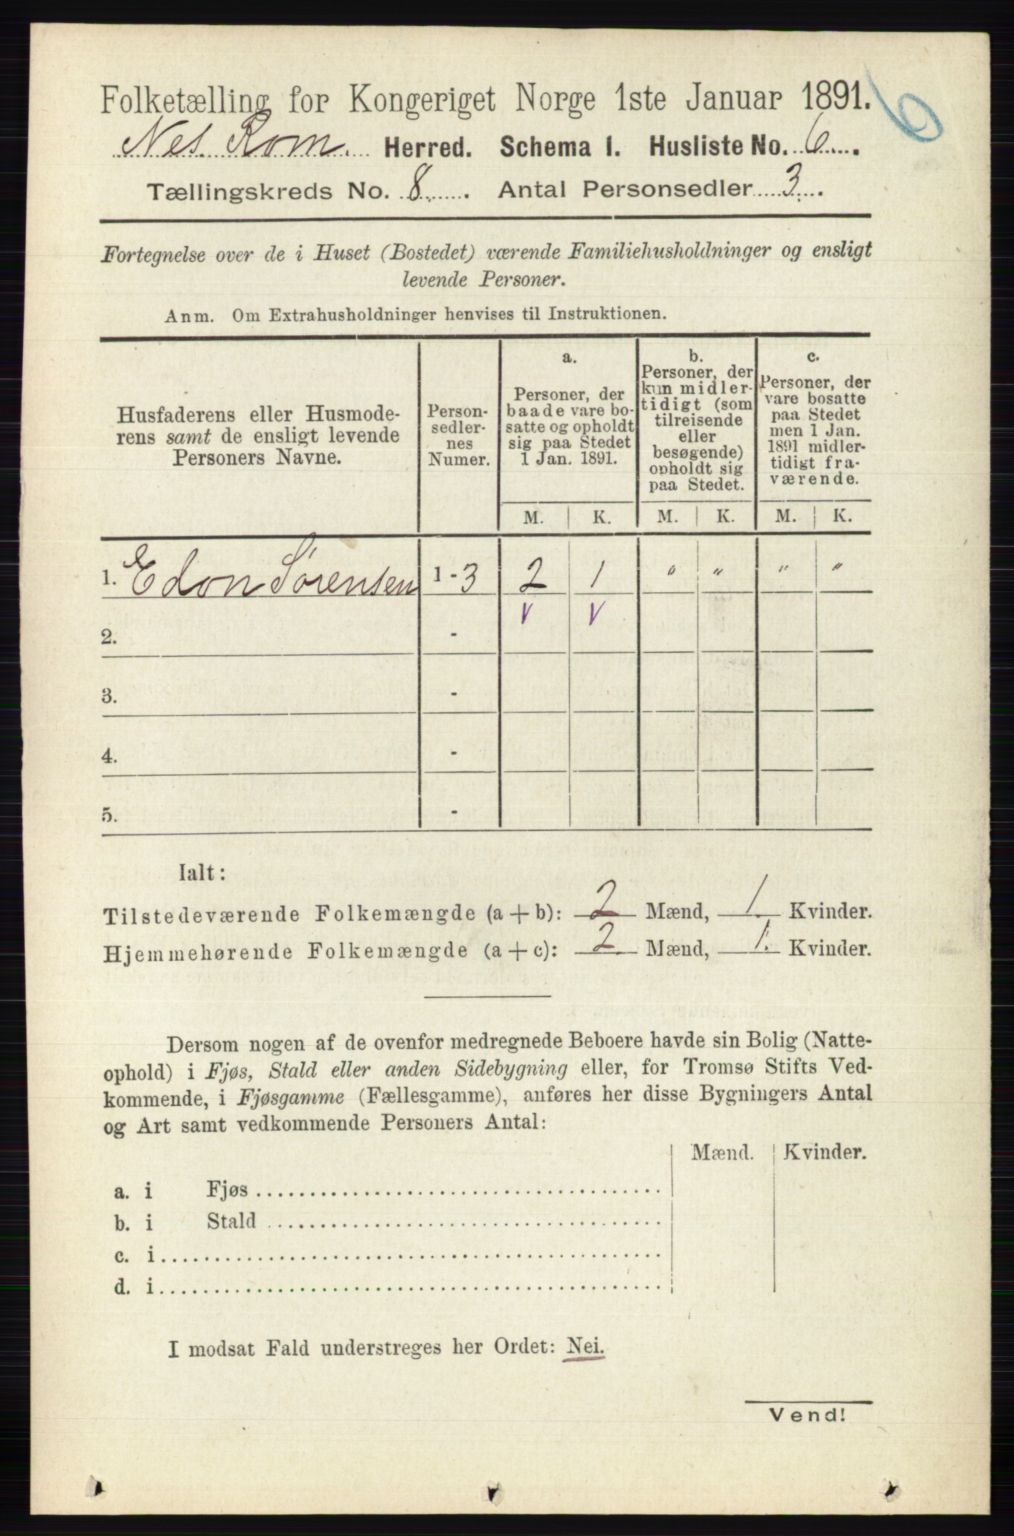 Folketælling for Kongeriget Norge 1ste Januar 1891.
6
Nes Rom. Herred. Schema 1. Husliste No. 6.
Tællingskreds No. 8. Antal Personsedler 3.
Fortegnelse over de i Huset (Bostedet) værende Familiehusholdninger og ensligt
levende Personer.
Anm. Om Extrahusholdninger henvises til Instruktionen.
Husfaderens eller Husmode-
rens samt de ensligt levende
Personers Navne.
Person-
sedler-
nes
Numer.
a.
Personer, der
baade vare bo-
satte og opholdt
sig paa Stedet
1 Jan. 1891.
b.
Personer, der
kun midler-
tidigt (som
tilreisende
eller
besøgende)
opholdt sig
paa Stedet.
c.
Personer, der
vare bosatte
paa Stedet
men 1 Jan.
1891 midler-
tidigt fra-
værende.
M. K. M. K. M. K.
1. Edon Sørensen 1-3 2 1 " " " "
2. - V V
3. -
4. -
5. -
Ialt:
Tilstedeværende Folkemængde (a+b): 2 Mænd, 1. Kvinder.
Hjemmehørende Folkemængde (a+c): 2. Mænd, 1. Kvinder.
Dersom nogen af de ovenfor medregnede Beboere havde sin Bolig (Natte-
ophold) i Fjøs, Stald eller anden Sidebygning eller, for Tromsø Stifts Ved-
kommende, i Fjøsgamme (Fællesgamme), anføres her disse Bygningers Antal
og Art samt vedkommende Personers Antal:
Mænd. Kvinder.
a. i Fjøs
b. i Stald
c. i
d. i
I modsat Fald understreges her Ordet: Nei.
Vend!